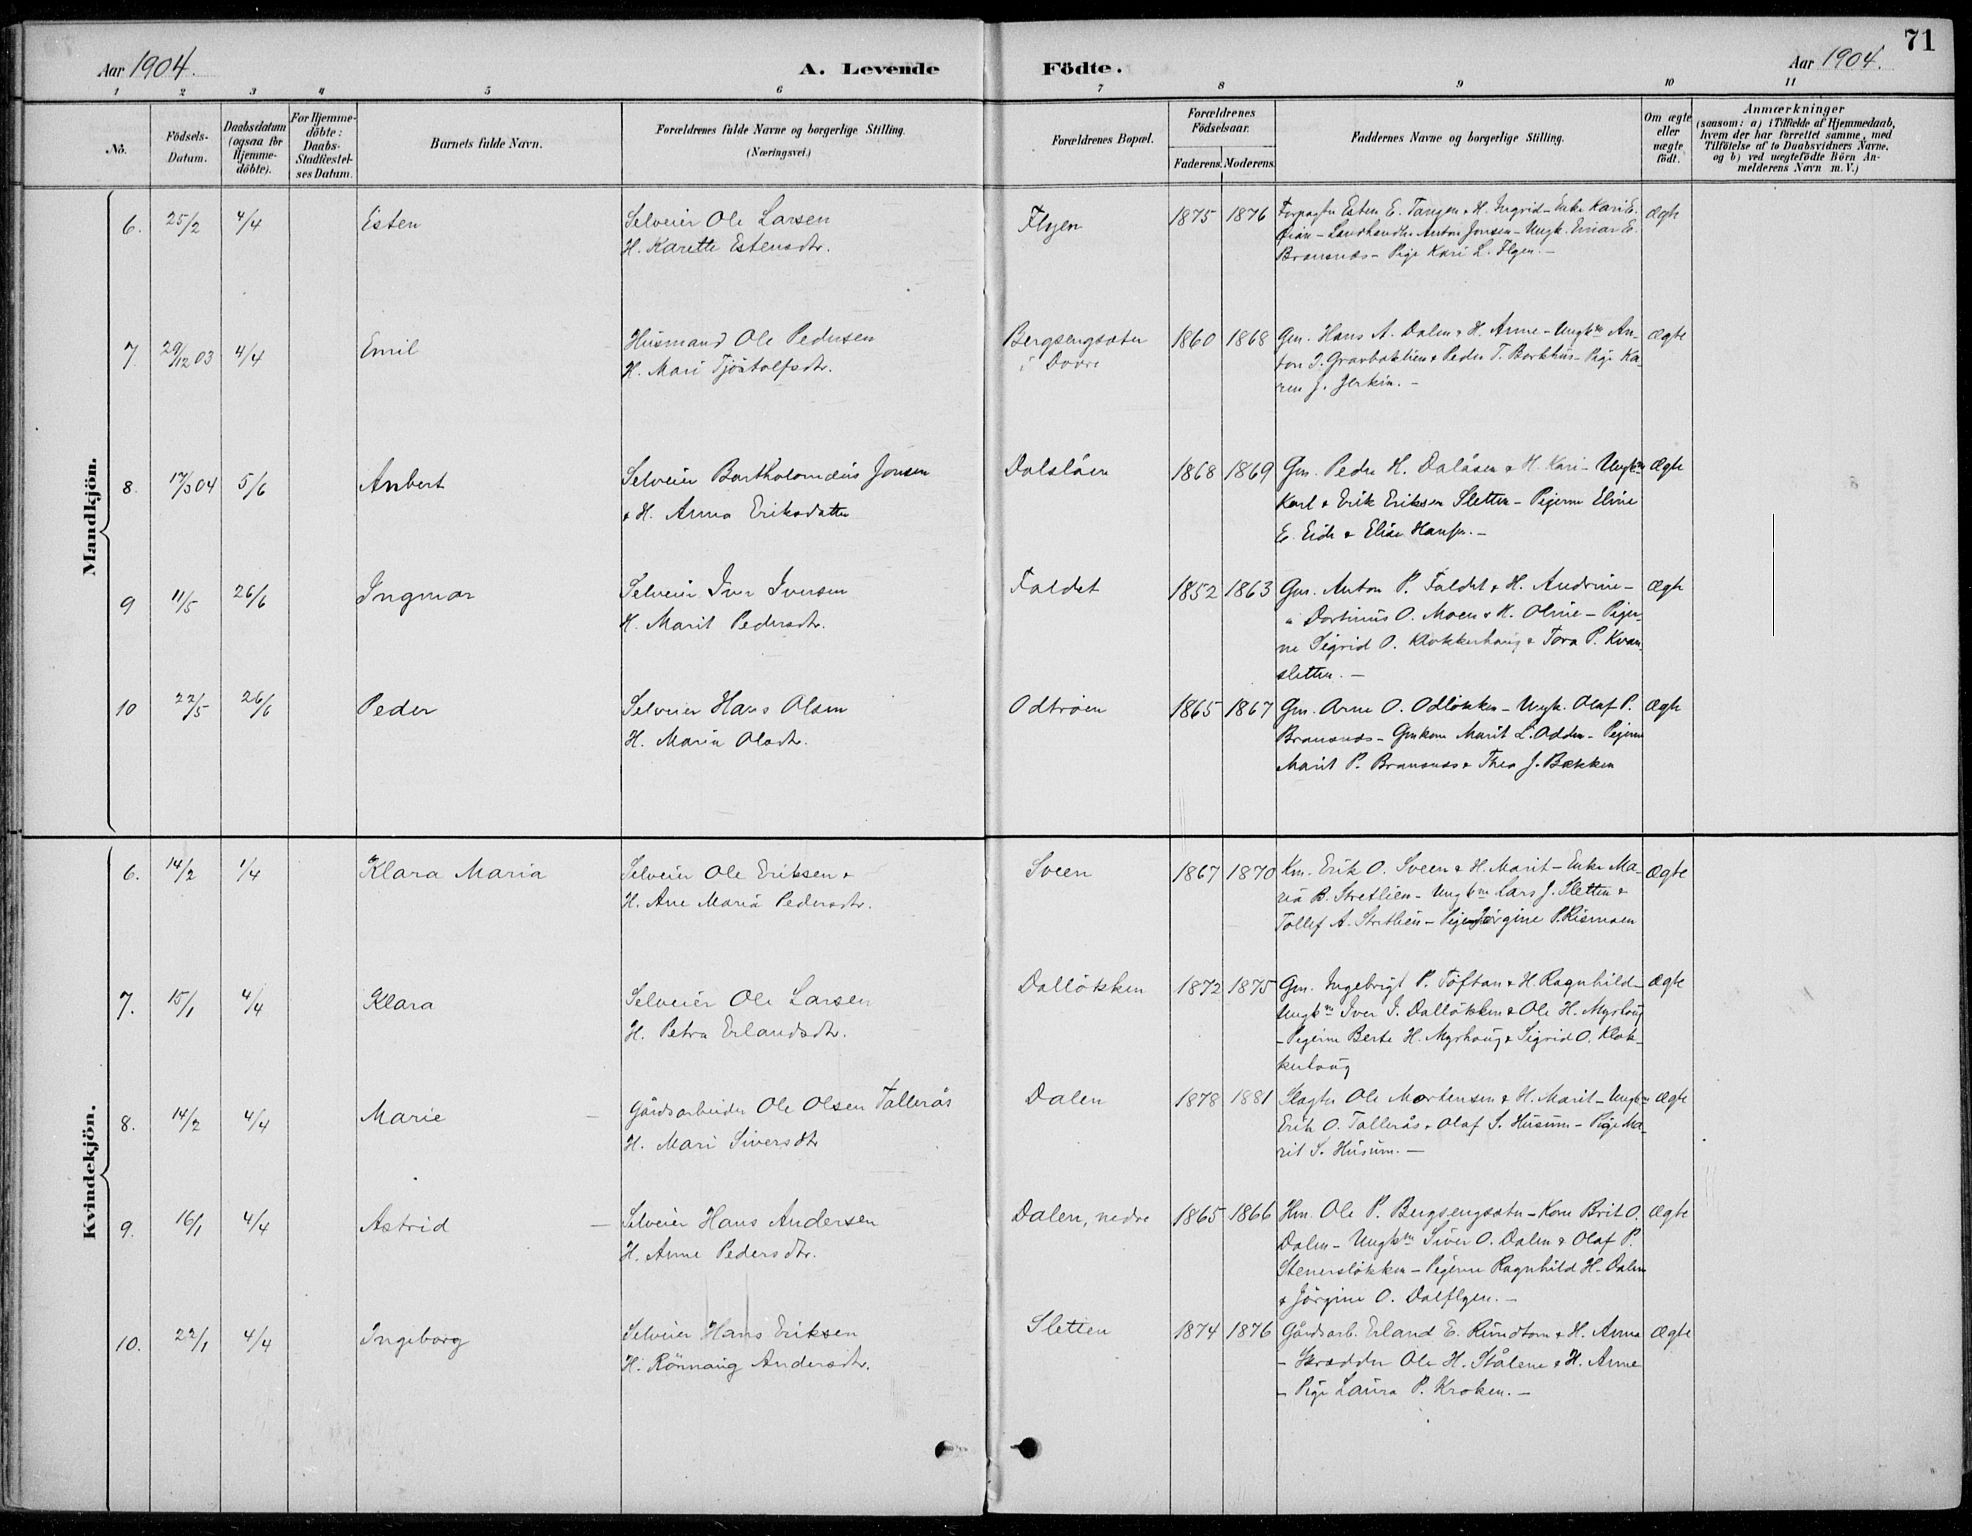 71
Aar 1904.
A. Levende Födte.
Aar 1904.
1 2 3 4 5 6 7 8 9 10 11
No.
Födsels-Datum.
Daabsdatum (ogsaa for Hjemme-döbte).
For Hjemme-döbte: Daabs-Stadfæstel-ses Datum.
Barnets fulde Navn.
Forældrenes fulde Navne og borgerlige Stilling. (Næringsvei.)
Forældrenes Bopæl.
Forældrenes Födselsaar.
Faderens. Moderens.
Faddernes Navne og borgerlige Stilling.
Om ægte eller uægte födt.
Anmærkninger
(saasom: a) i Tilfælde af Hjemmedaab,
hvem der har forrettet samme, med
Tilföielse af to Daabsvidners Navne,
og b) ved uægtefödte Börn An-
melderens Navn m. V.)
Mandkjön.
6. 25/2 4/4 Esten Selveier Ole Larsen Flyen 1875 1876 Forpagter Esten E. Tangen & H. Ingrid - Enke Kari E. Ægte
H. Karette Estensdtr. Landhandl. Anton Jonsen - Ungk. Einar E.
Bransnæs - Pige Kari L. Flyen. -
7. 29/12 03 4/4 Emil Husmand Ole Pedersen Bergsengsæter 1860 1868 Gm. Hans A. Dalen & H. Anne - Ungkm An- Ægte
H. Mari Tjöstolfsdtr. i Dovre ton I. Gravbaklien & Peder T. Barkhus - Pige Ka-
ren J. Jerkin. -
8. 17/3 04 5/6 Anbert Selveier Bartholomæus Jonsen Dalslåen 1868 1869 Gm. Peder H. Dalåsen & H. Kari - Ungkm Ægte
& H. Anna Eriksdatter Karl & Erik Eriksen Sletten - Pigerne Eline
E. Eide & Elise Hansen. -
9 11/5 26/6 Ingmar Selveier Iver Iversen Faldet 1852 1863 Gm. Anton P. Faldet & H. Andrine - Ægte
H. Marit Pedersdtr. " Dortinus O. Moen & H. Oline - Piger-
ne Sigrid O. Klokkerhaug & Tora P. Kvam-
sletten. -
10 22/5 26/6 Peder Selveier Hans Olsen Odtröen 1865 1867 Gm. Arne O. Odlökken - Ungk. Olaf P. Ægte
H. Maria Olsdtr. Bransnæs - Gmkone Marit L. Odden - Pigerne
Marit P. Bransnæs & Thea J. Bækken
Kvindekjön.
6. 14/2 1/4 Klara Maria Selveier Ole Eriksen & Sveen 1867 1870 Km. Erik O. Sveen & H. Marit - Enke Ma- Ægte
H. Ane Maria Pedersdtr. ria B. Stretlien - Ungkm Lars J. Sletten &
Tollef A. Stretlien - Pige Jörgine P. Rismoen
7. 15/1 4/4 Klara Selveier Ole Larsen Dallökken 1872 1875 Gm. Ingebrigt P. Toftan & H. Ragnhild - Ægte
H. Petra Erlandsdtr. Ungkm Iver I. Dallökken & Ole H. Myrhaug
- Pigerne Berte H. Myrhaug & Sigrid O. Klok-
kerhaug
8. 14/2 4/4 Marie Gårdsarbeider Ole Olsen Tallerås Dalen 1878 1881 Slagter Ole Mortensen & H. Marit - Ungkm Ægte
H. Mari Siversdtr Erik O. Tallerås & Olaf S. Husum - Pige Ma-
rit S. Husum. -
9. 16/1 4/4 Astrid Selveier Hans Andersen Dalen, nedre 1865 1866 Hm. Ole P. Bergsengsæter - Kone Brit O. Ægte
H. Anne Pedersdtr. Dalen - Ungkm Siver O. Dalen & Olaf P.
Stenerslökken - Pigerne Ragnhild H. Dalen
& Jörgine O. Dalflyen. -
10. 22/1 4/4 Ingeborg Selveier Hans Eriksen Sletten 1874 1876 Gårdsarb. Erland E. Rundtom & H. Anna Ægte
H. Rönnaug Andersdtr. - Skrædder Ole H. Stålene & H. Anne
- Pige Laura P. Kroken. -